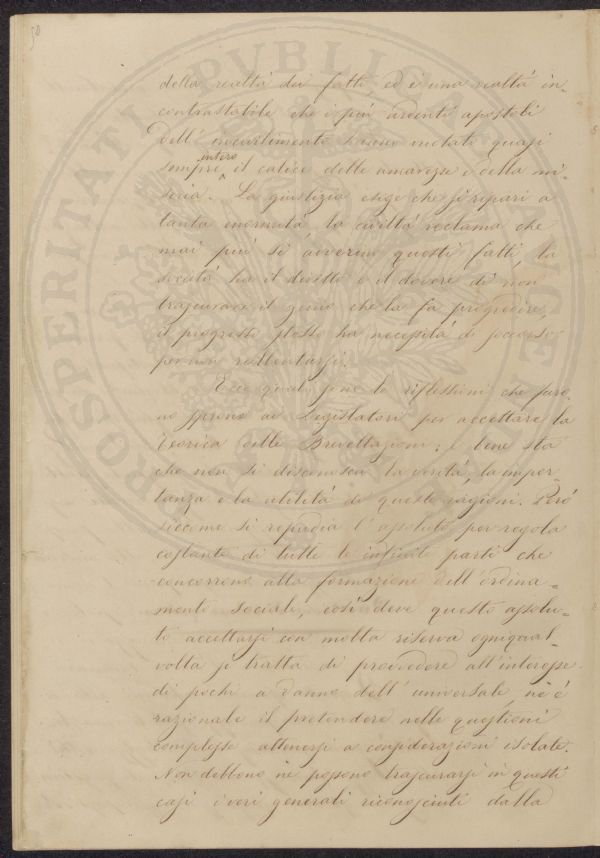 50
della realtà dei fatti, ed è una realtà in-
contrastabile che i più ardenti apostoli
dell'incivilimento hanno vuotato quasi
sempre intero il calice delle amarezze e della mi-
seria. La giustizia esige che si ripari a
tanta enormità, la civiltà reclama che
mai più si avverino questi fatti, la
società ha il diritto e il dovere di non
trascurare il genio che la fa progredire,
il progresso stesso ha necessità di soccorso
per non rallentarsi.
Ecco quali sono le riflessioni che furo-
no sprone ai Legislatori per accettare la
teorica delle Brevettazioni; bene sta
che non si disconosca la verità, la impor-
tanza e la utilità di queste ragioni. Però
siccome si repudia l'assoluto per regola
costante di tutte le infinite parti che
concorrono alla formazione dell'ordina-
mento sociale, così deve questo assolu-
to accettarsi con molta riserva ogniqual-
volta si tratta di provvedere all'interesse
di pochi a danno dell'universale, nè è
razionale il pretendere nelle questioni
complesse attenersi a considerazioni isolate.
Non debbono nè possono trascurarsi in questi
casi i veri generali riconosciuti dalla
PROSPERITATI PVBLICAE